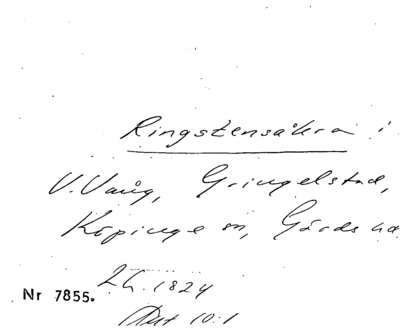 Ringstensåkra i
V. Vång, Gringelstad,
Köpinge sn, Gärds hd
2h. 1824
Nr 7855.
Akt 10:1